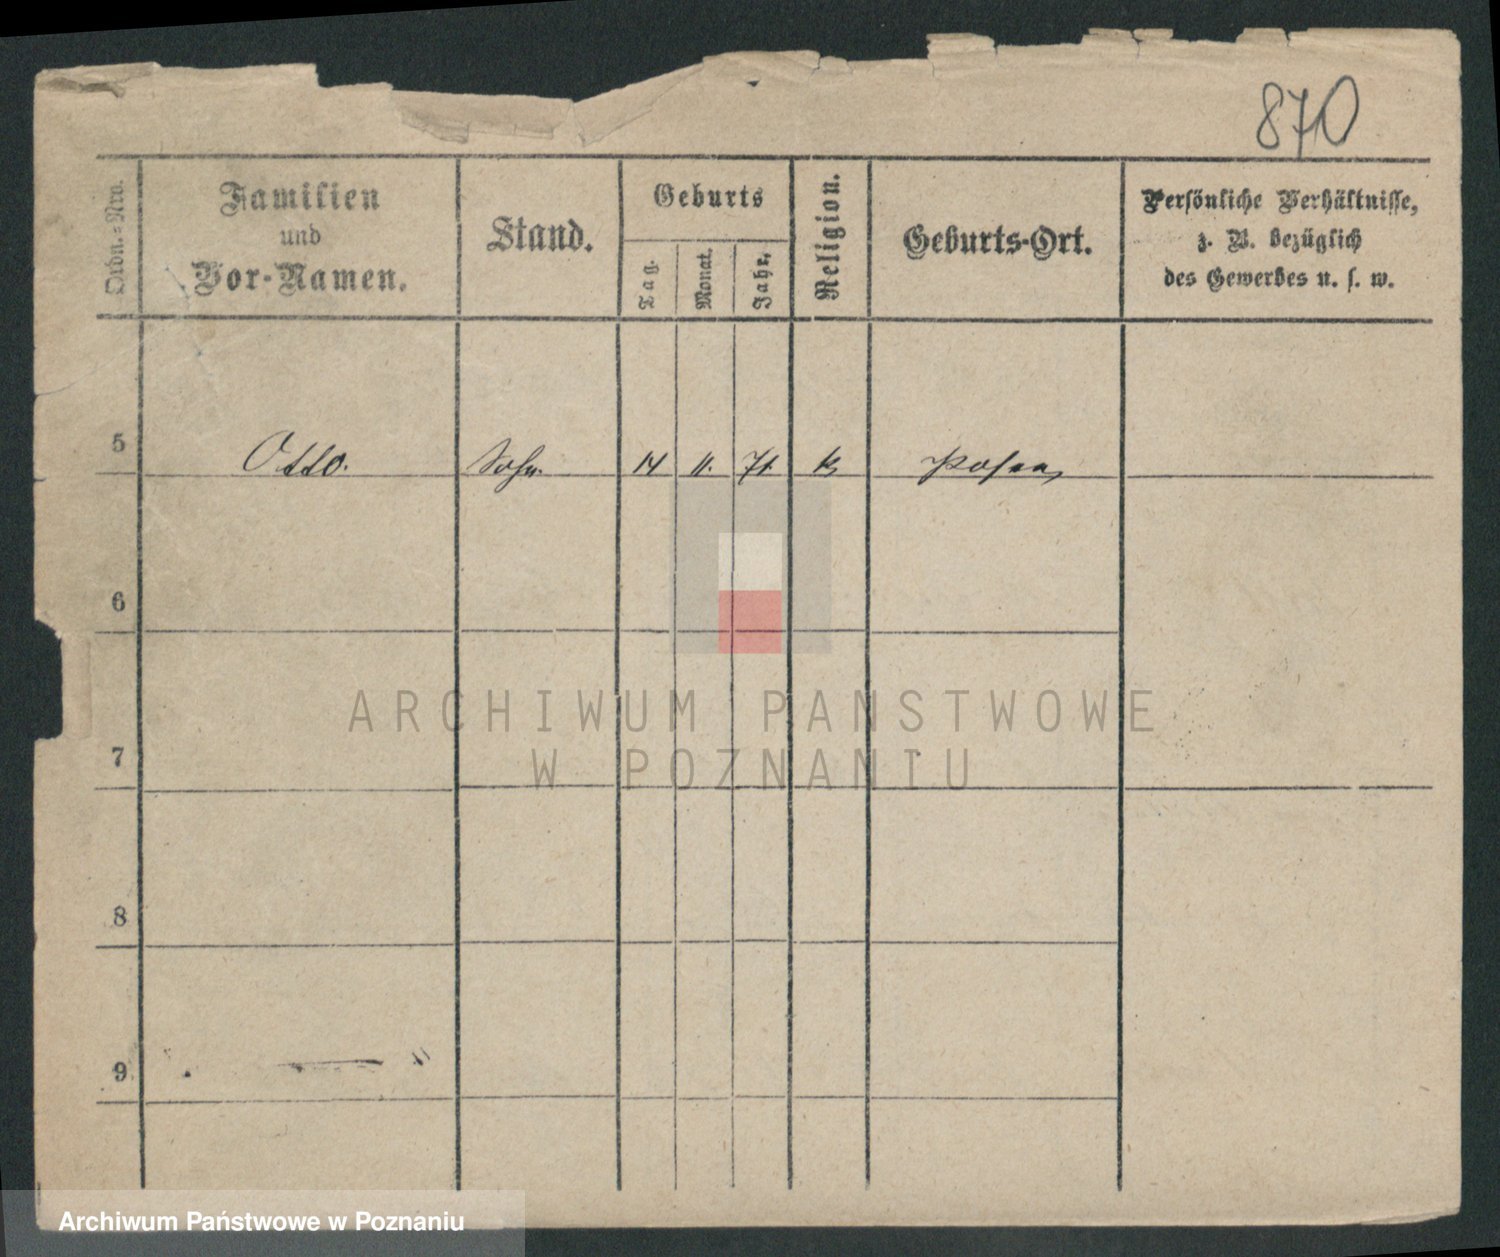 870
Ordn.-Nro.
Familien
und
Vor-Namen.
Stand.
Geburts
Tag.
Monat.
Jahr.
Religion.
Geburts-Ort.
Persönliche Verhältnisse,
z. B. bezüglich
des Gewerbes u. s. w.
5 Otto. Sohn. 14 11. 71. k Posen
6
7
8
9
ARCHIWUM PAŃSTWOWE
W POZNANIU
Archiwum Państwowe w Poznaniu